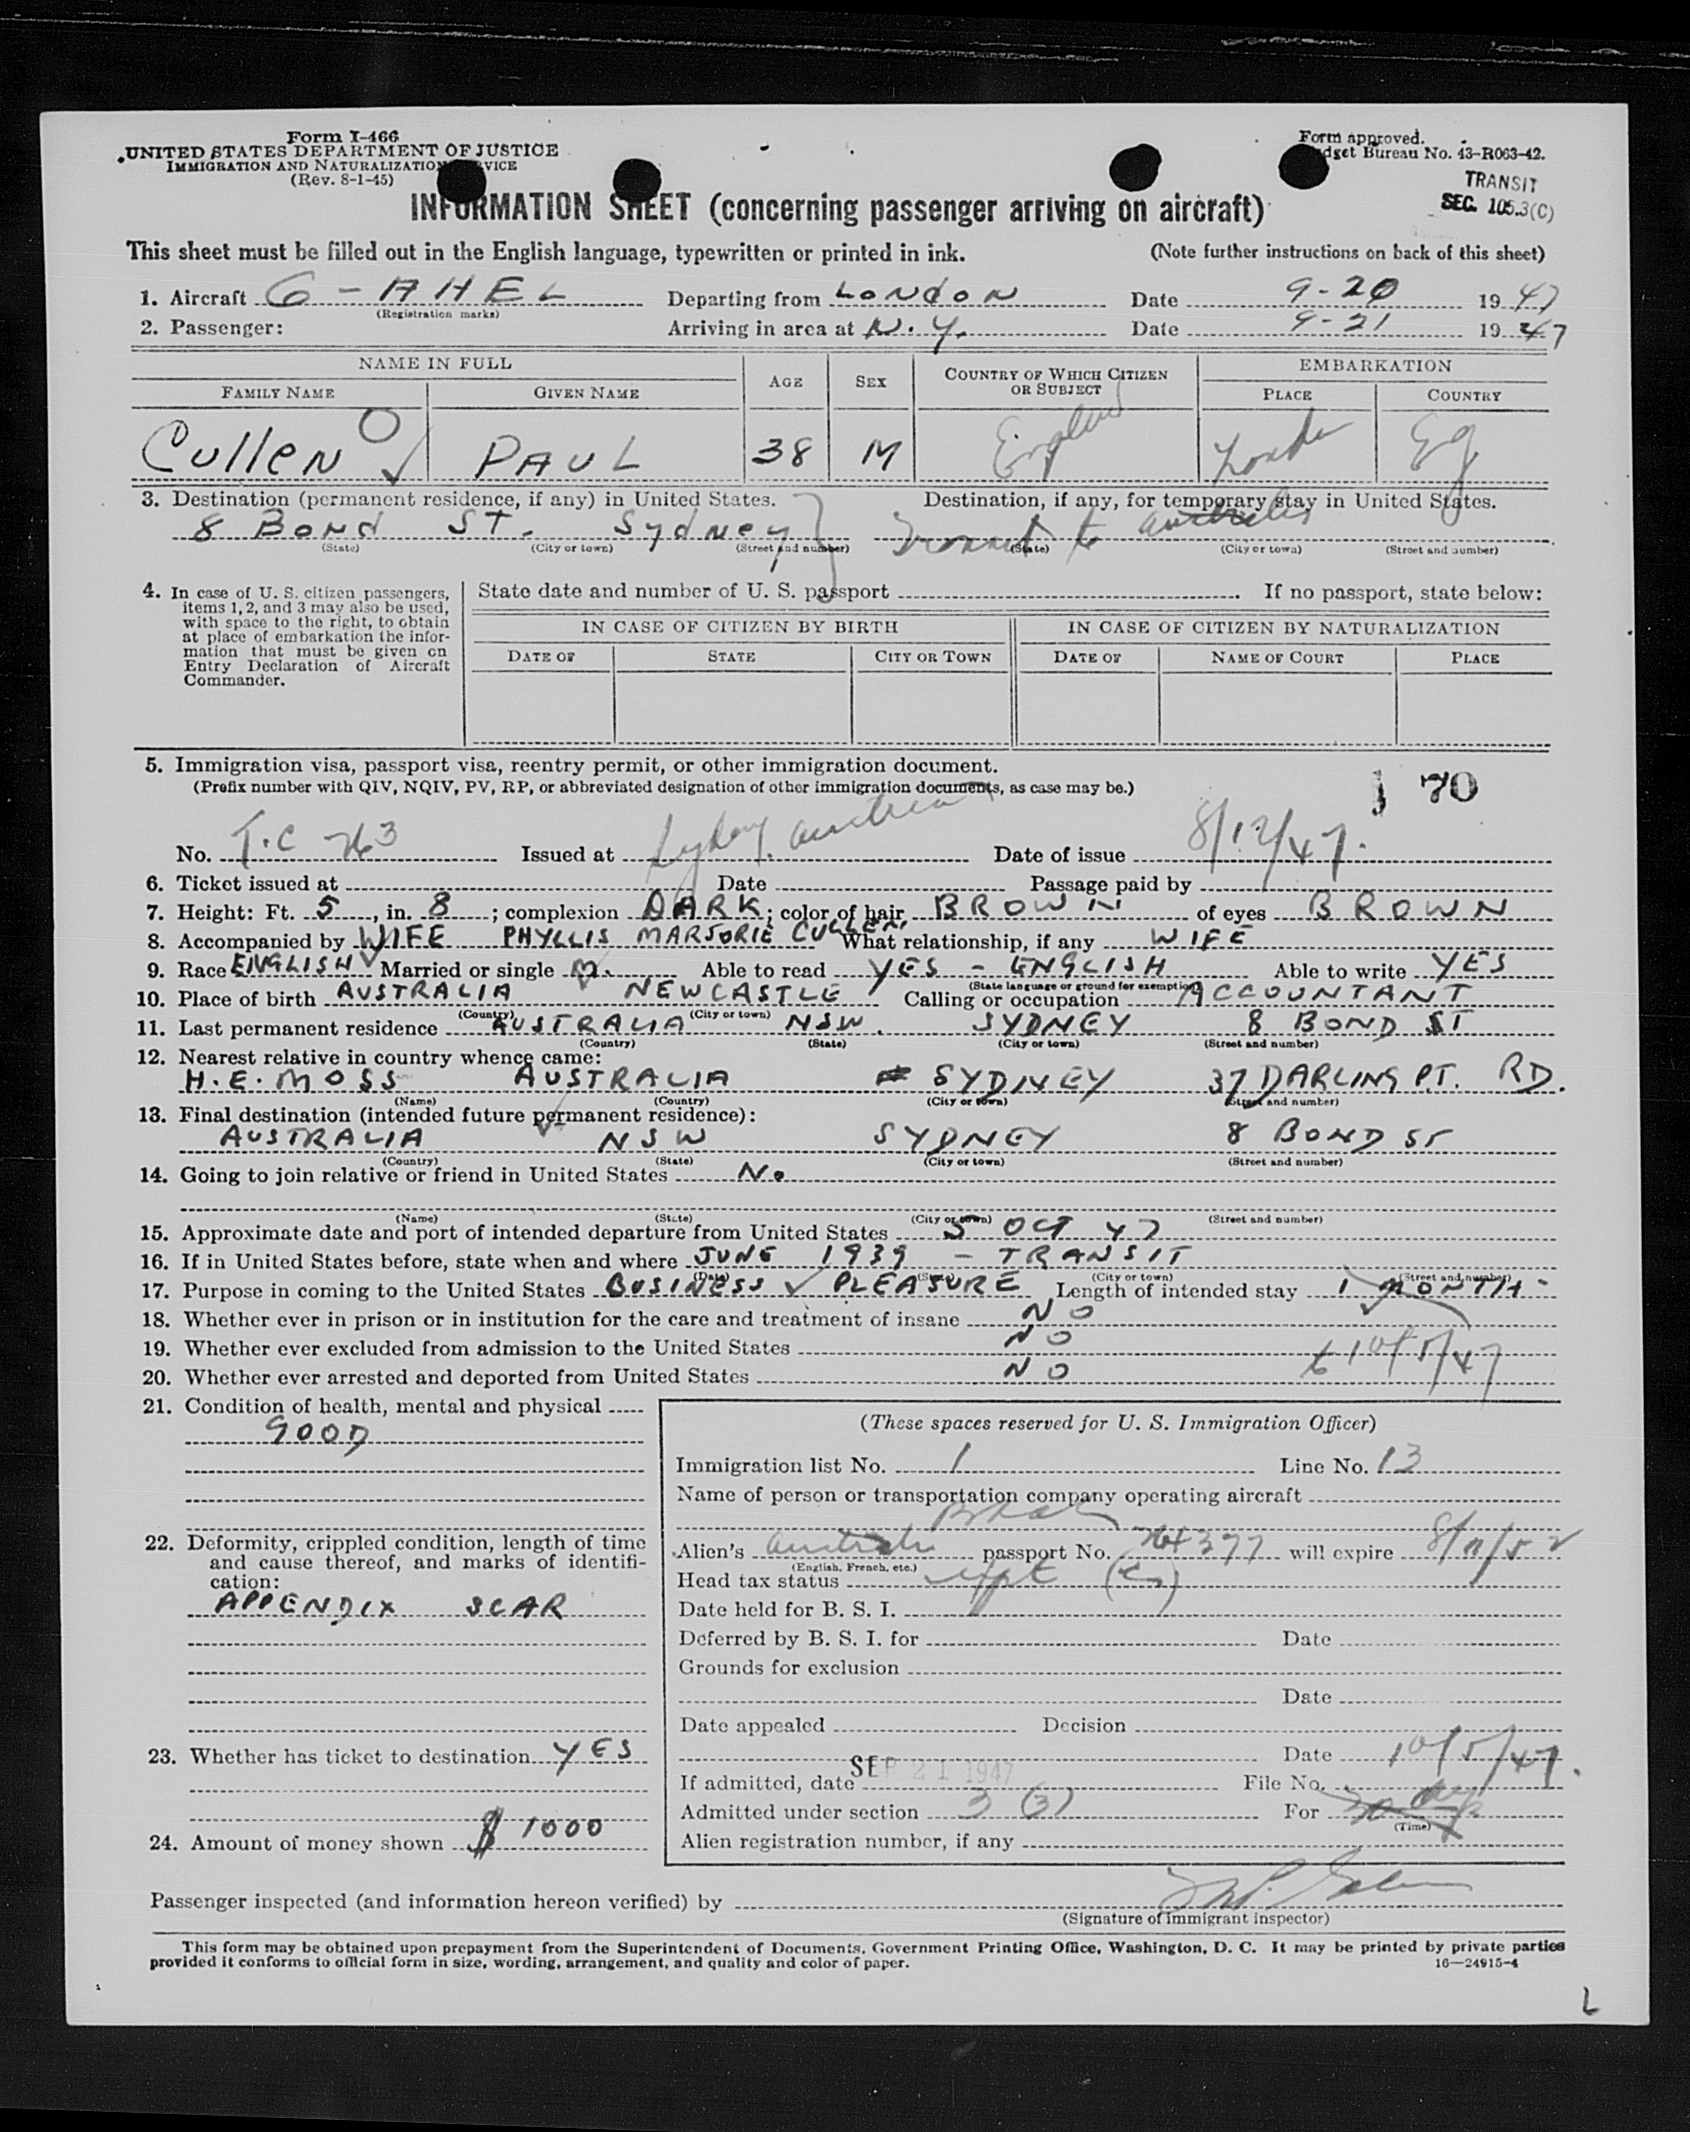 Form I-466
UNITED STATES DEPARTMENT OF JUSTICE
IMMIGRATION AND NATURALIZATION SERVICE
(Rev. 8-1-45)
Form approved.
Budget Bureau No. 43-R063-42.
TRANSIT
SEC. 105.3(C)
INFORMATION SHEET (concerning passenger arriving on aircraft)
This sheet must be filled out in the English language, typewritten or printed in ink. (Note further instructions on back of this sheet)
1. Aircraft G-AHEL Departing from LONDON Date 9-20 1947
(Registration marks)
2. Passenger: Arriving in area at N.Y. Date 9-21 1947
NAME IN FULL AGE SEX COUNTRY OF WHICH CITIZEN OR SUBJECT EMBARKATION
FAMILY NAME GIVEN NAME PLACE COUNTRY
Cullen PAUL 38 M England London Eg
3. Destination (permanent residence, if any) in United States. Destination, if any, for temporary stay in United States.
8 Bond ST. Sydney Transit to Australia
(State) (City or town) (Street and number) (State) (City or town) (Street and number)
4. In case of U. S. citizen passengers, items 1, 2, and 3 may also be used, with space to the right, to obtain at place of embarkation the information that must be given on Entry Declaration of Aircraft Commander.
State date and number of U. S. passport If no passport, state below:
IN CASE OF CITIZEN BY BIRTH IN CASE OF CITIZEN BY NATURALIZATION
DATE OF STATE CITY OR TOWN DATE OF NAME OF COURT PLACE
5. Immigration visa, passport visa, reentry permit, or other immigration document.
(Prefix number with QIV, NQIV, PV, RP, or abbreviated designation of other immigration documents, as case may be.)
70
No. T.C 763 Issued at Sydney, Australia Date of issue 8/12/47.
6. Ticket issued at Date Passage paid by
7. Height: Ft. 5, in. 8; complexion DARK; color of hair BROWN of eyes BROWN
8. Accompanied by WIFE PHYLLIS MARJORIE CULLEN What relationship, if any WIFE
9. Race ENGLISH Married or single M. Able to read YES - ENGLISH Able to write YES
(State language or ground for exemption)
10. Place of birth AUSTRALIA NEWCASTLE Calling or occupation ACCOUNTANT
(Country) (City or town)
11. Last permanent residence AUSTRALIA NSW. SYDNEY 8 BOND ST
(Country) (State) (City or town) (Street and number)
12. Nearest relative in country whence came:
H.E. MOSS AUSTRALIA SYDNEY 37 DARLING PT. RD.
(Name) (Country) (City or town) (Street and number)
13. Final destination (intended future permanent residence):
AUSTRALIA NSW SYDNEY 8 BOND ST
(Country) (State) (City or town) (Street and number)
14. Going to join relative or friend in United States No
(Name) (State) (City or town) (Street and number)
15. Approximate date and port of intended departure from United States 5 OCT 47
16. If in United States before, state when and where JUNE 1939 - TRANSIT
(Date) (State) (City or town) (Street and number)
17. Purpose in coming to the United States BUSINESS PLEASURE Length of intended stay 1 MONTH
18. Whether ever in prison or in institution for the care and treatment of insane NO
19. Whether ever excluded from admission to the United States NO
to 10/5/47
20. Whether ever arrested and deported from United States NO
21. Condition of health, mental and physical
GOOD
22. Deformity, crippled condition, length of time and cause thereof, and marks of identification:
APPENDIX SCAR
23. Whether has ticket to destination YES
24. Amount of money shown $ 1000
(These spaces reserved for U. S. Immigration Officer)
Immigration list No. 1 Line No. 13
Name of person or transportation company operating aircraft
Alien's Australia passport No. will expire
(English, French, etc.)
Head tax status
Date held for B. S. I.
Deferred by B. S. I. for Date
Grounds for exclusion
Date
Date appealed Decision
Date 10/5/47.
If admitted, date SEP 21 1947 File No.
Admitted under section 3 (3) For 30 days
(Time)
Alien registration number, if any
Passenger inspected (and information hereon verified) by
(Signature of immigrant inspector)
This form may be obtained upon prepayment from the Superintendent of Documents, Government Printing Office, Washington, D. C. It may be printed by private parties
provided it conforms to official form in size, wording, arrangement, and quality and color of paper. 16—24915-4
L